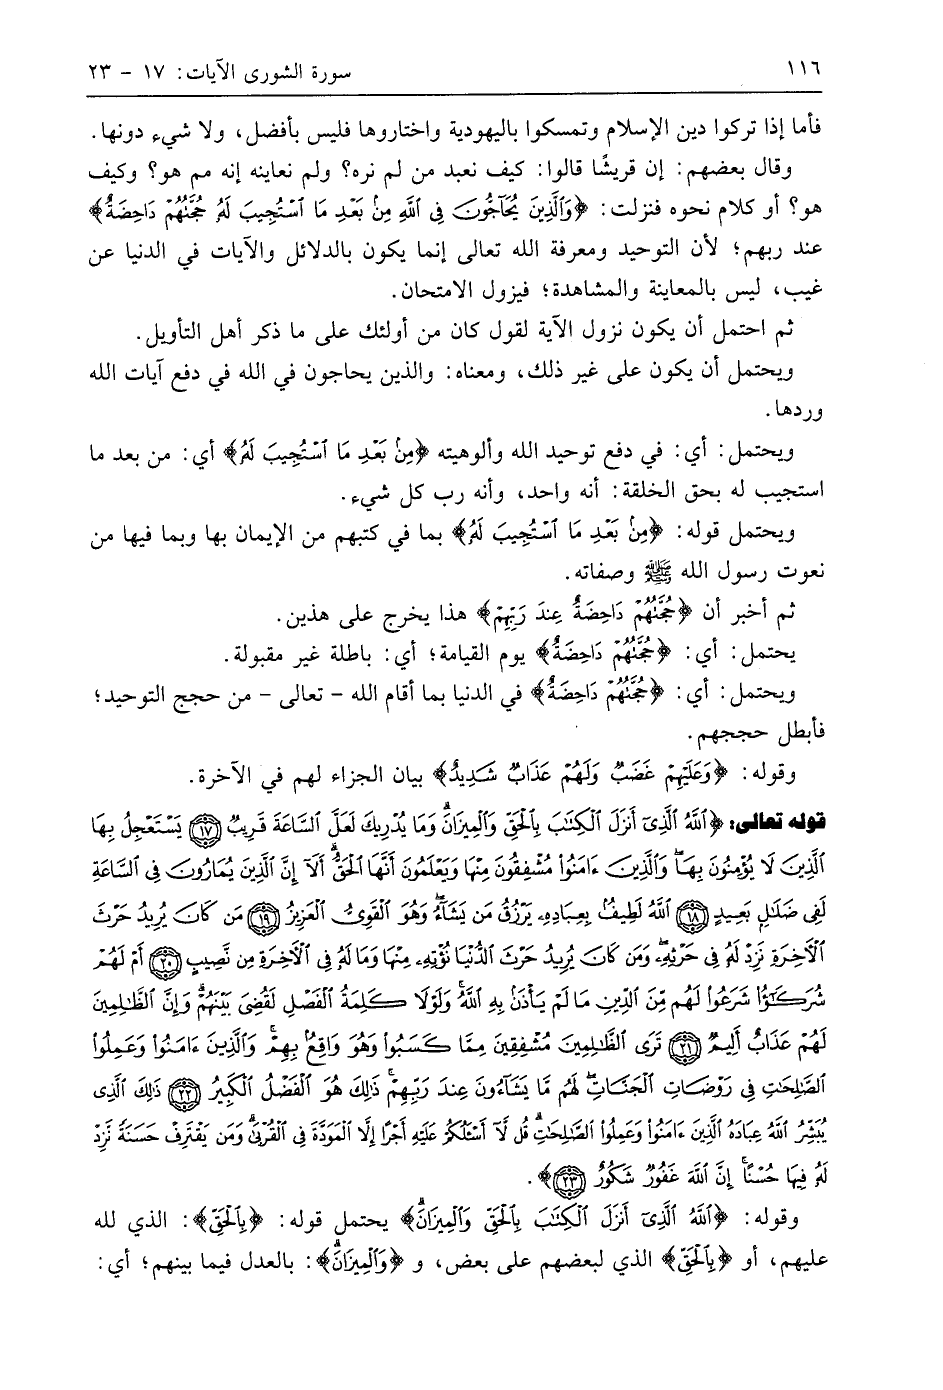 ١١٦ سورة الشورى الآيات: ١٧ - ٢٣
فأما إذا تركوا دين الإسلام وتمسكوا باليهودية واختاروها فليس بأفضل، ولا شيء دونها.
وقال بعضهم: إن قريشًا قالوا: كيف نعبد من لم نره؟ ولم نعاينه إنه مم هو؟ وكيف
هو؟ أو كلام نحوه فنزلت: ﴿وَٱلَّذِينَ يُحَآجُّونَ فِى ٱللَّهِ مِنۢ بَعْدِ مَا ٱسْتُجِيبَ لَهُۥ حُجَّتُهُمْ دَاحِضَةٌ﴾
عند ربهم؛ لأن التوحيد ومعرفة الله تعالى إنما يكون بالدلائل والآيات في الدنيا عن
غيب، ليس بالمعاينة والمشاهدة؛ فيزول الامتحان.
ثم احتمل أن يكون نزول الآية لقول كان من أولئك على ما ذكر أهل التأويل.
ويحتمل أن يكون على غير ذلك، ومعناه: والذين يحاجون في الله في دفع آيات الله
وردها.
ويحتمل: أي: في دفع توحيد الله وألوهيته ﴿مِنۢ بَعْدِ مَا ٱسْتُجِيبَ لَهُۥ﴾ أي: من بعد ما
استجيب له بحق الخلقة: أنه واحد، وأنه رب كل شيء.
ويحتمل قوله: ﴿مِنۢ بَعْدِ مَا ٱسْتُجِيبَ لَهُۥ﴾ بما في كتبهم من الإيمان بها وبما فيها من
نعوت رسول الله ﷺ وصفاته.
ثم أخبر أن ﴿حُجَّتُهُمْ دَاحِضَةٌ عِندَ رَبِّهِمْ﴾ هذا يخرج على هذين.
يحتمل: أي: ﴿حُجَّتُهُمْ دَاحِضَةٌ﴾ يوم القيامة؛ أي: باطلة غير مقبولة.
ويحتمل: أي: ﴿حُجَّتُهُمْ دَاحِضَةٌ﴾ في الدنيا بما أقام الله - تعالى - من حجج التوحيد؛
فأبطل حججهم.
وقوله: ﴿وَعَلَيْهِمْ غَضَبٌ وَلَهُمْ عَذَابٌ شَدِيدٌ﴾ بيان الجزاء لهم في الآخرة.
قوله تعالى: ﴿ٱللَّهُ ٱلَّذِىٓ أَنزَلَ ٱلْكِتَٰبَ بِٱلْحَقِّ وَٱلْمِيزَانَ ۗ وَمَا يُدْرِيكَ لَعَلَّ ٱلسَّاعَةَ قَرِيبٌ ١٧ يَسْتَعْجِلُ بِهَا
ٱلَّذِينَ لَا يُؤْمِنُونَ بِهَا ۖ وَٱلَّذِينَ ءَامَنُوا۟ مُشْفِقُونَ مِنْهَا وَيَعْلَمُونَ أَنَّهَا ٱلْحَقُّ ۗ أَلَآ إِنَّ ٱلَّذِينَ يُمَارُونَ فِى ٱلسَّاعَةِ
لَفِى ضَلَٰلٍۭ بَعِيدٍ ١٨ ٱللَّهُ لَطِيفٌۢ بِعِبَادِهِۦ يَرْزُقُ مَن يَشَآءُ ۖ وَهُوَ ٱلْقَوِىُّ ٱلْعَزِيزُ ١٩ مَن كَانَ يُرِيدُ حَرْثَ
ٱلْءَاخِرَةِ نَزِدْ لَهُۥ فِى حَرْثِهِۦ ۖ وَمَن كَانَ يُرِيدُ حَرْثَ ٱلدُّنْيَا نُؤْتِهِۦ مِنْهَا وَمَا لَهُۥ فِى ٱلْءَاخِرَةِ مِن نَّصِيبٍ ٢٠ أَمْ لَهُمْ
شُرَكَٰٓؤُا۟ شَرَعُوا۟ لَهُم مِّنَ ٱلدِّينِ مَا لَمْ يَأْذَنۢ بِهِ ٱللَّهُ ۚ وَلَوْلَا كَلِمَةُ ٱلْفَصْلِ لَقُضِىَ بَيْنَهُمْ ۗ وَإِنَّ ٱلظَّٰلِمِينَ
لَهُمْ عَذَابٌ أَلِيمٌ ٢١ تَرَى ٱلظَّٰلِمِينَ مُشْفِقِينَ مِمَّا كَسَبُوا۟ وَهُوَ وَاقِعٌۢ بِهِمْ ۗ وَٱلَّذِينَ ءَامَنُوا۟ وَعَمِلُوا۟
ٱلصَّٰلِحَٰتِ فِى رَوْضَاتِ ٱلْجَنَّاتِ ۖ لَهُم مَّا يَشَآءُونَ عِندَ رَبِّهِمْ ۚ ذَٰلِكَ هُوَ ٱلْفَضْلُ ٱلْكَبِيرُ ٢٢ ذَٰلِكَ ٱلَّذِى
يُبَشِّرُ ٱللَّهُ عِبَادَهُ ٱلَّذِينَ ءَامَنُوا۟ وَعَمِلُوا۟ ٱلصَّٰلِحَٰتِ ۗ قُل لَّآ أَسْـَٔلُكُمْ عَلَيْهِ أَجْرًا إِلَّا ٱلْمَوَدَّةَ فِى ٱلْقُرْبَىٰ ۗ وَمَن يَقْتَرِفْ حَسَنَةً نَّزِدْ
لَهُۥ فِيهَا حُسْنًا ۚ إِنَّ ٱللَّهَ غَفُورٌ شَكُورٌ ٢٣﴾.
وقوله: ﴿ٱللَّهُ ٱلَّذِىٓ أَنزَلَ ٱلْكِتَٰبَ بِٱلْحَقِّ وَٱلْمِيزَانَ ۗ﴾ يحتمل قوله: ﴿بِٱلْحَقِّ﴾: الذي لله
عليهم، أو ﴿بِٱلْحَقِّ﴾ الذي لبعضهم على بعض، و ﴿وَٱلْمِيزَانَ ۗ﴾: بالعدل فيما بينهم؛ أي: